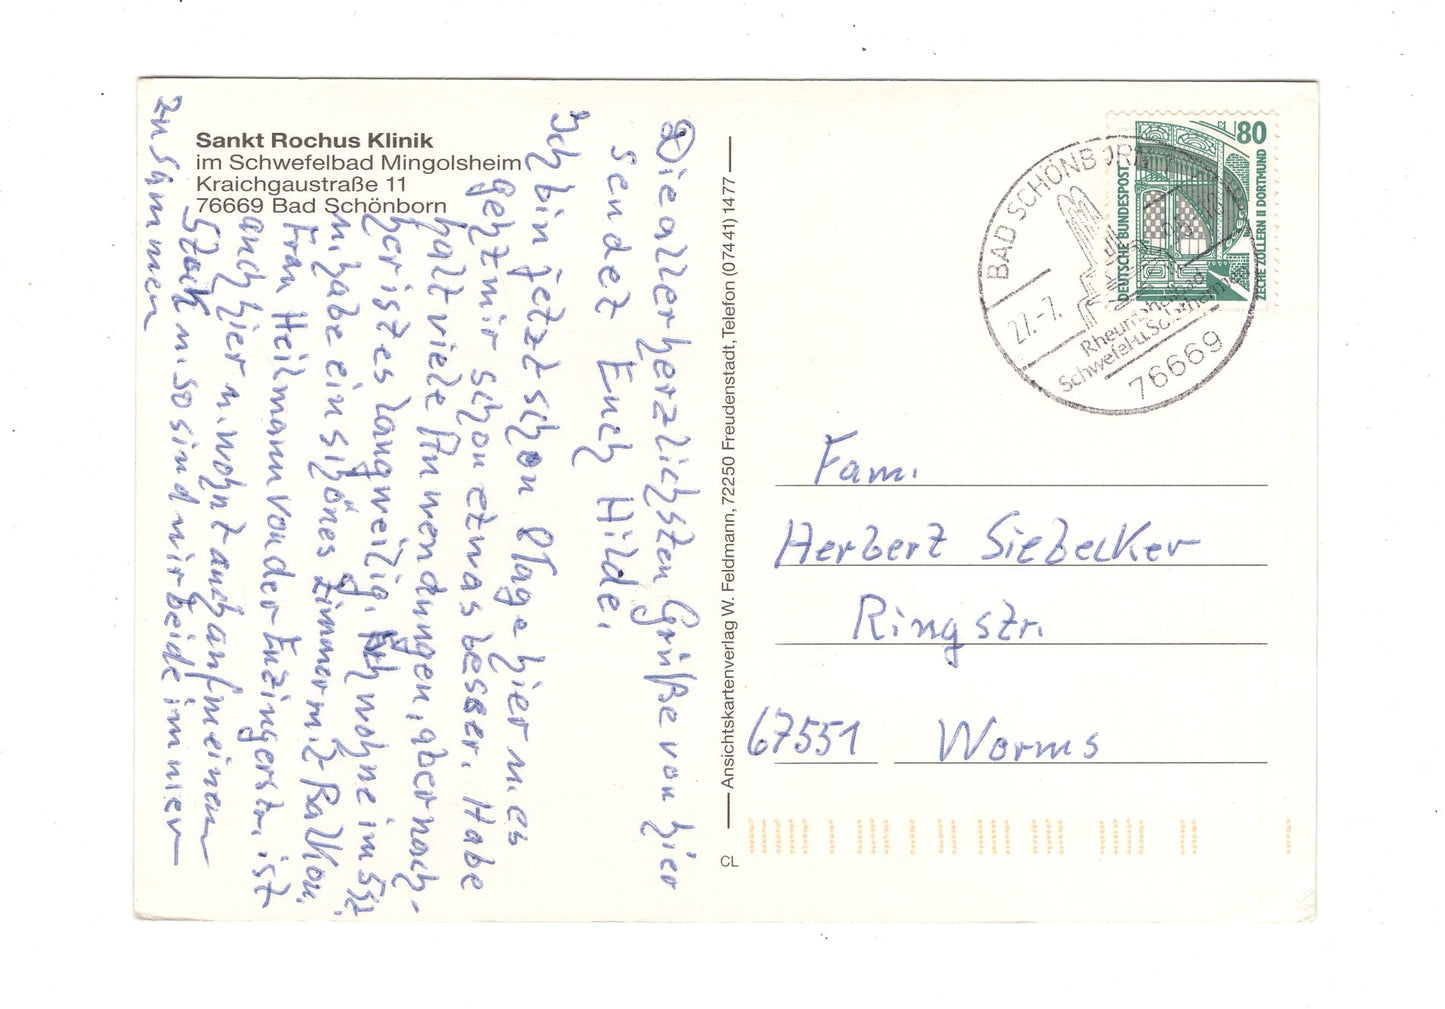 Sankt Rochus Klinik
im Schwefelbad Mingolsheim
Kraichgaustraße 11
76669 Bad Schönborn
Die allerherzlichsten Grüße von hier
sendet Euch Hilde.
Ich bin jetzt schon 8 Tage hier u. es
geht mir schon etwas besser. Habe
halt viele Anwendungen, aber nach-
her ist es langweilig. Ich wohne im 5 St.
u. habe ein schönes Zimmer mit Balkon.
Frau Heilmann von der Enzingerstr. ist
auch hier u. wohnt auch auf meinem
Stock u. so sind wir beide immer
zusammen
Ansichtskartenverlag W. Feldmann, 72250 Freudenstadt, Telefon (07441) 1477
CL
80
DEUTSCHE BUNDESPOST
ZECHE ZOLLERN II DORTMUND
BAD SCHÖNBORN
27.-7.
Rheumaheilbad
Schwefel-u.
76669
Fam.
Herbert Siebecker
Ringstr.
67551 Worms